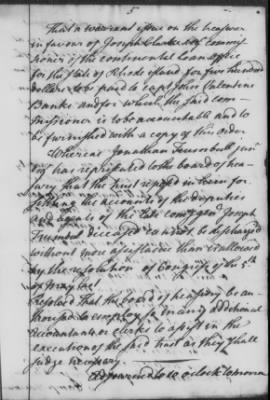 5
That a warrant issue on the treasurer
in favour of Joseph Clarke Esqr commis
sioner of the continental loan office
for the state of Rhode island for five hundred
dollars to be paid to capt John Valentine
Banks and for which the said com-
missioner is to be accountable and to
be furnished with a copy of this order
Whereas Jonathan Trumbull jun
Esq has represented to the board of trea
sury that the trust reposed in him for
settling the accounts of the deputies
and agents of the late comy genl Joseph
Trumbull deceased cannot be discharged
without more assistance than is allowed
by the resolution of Congress of the 5th
of may last
Resolved That the board of treasury be au
thorised to employ so many additional
accountants or clerks to assist in the
execution of the said trust as they shall
judge necessary.
Adjourned to 10 o'clock to morrow